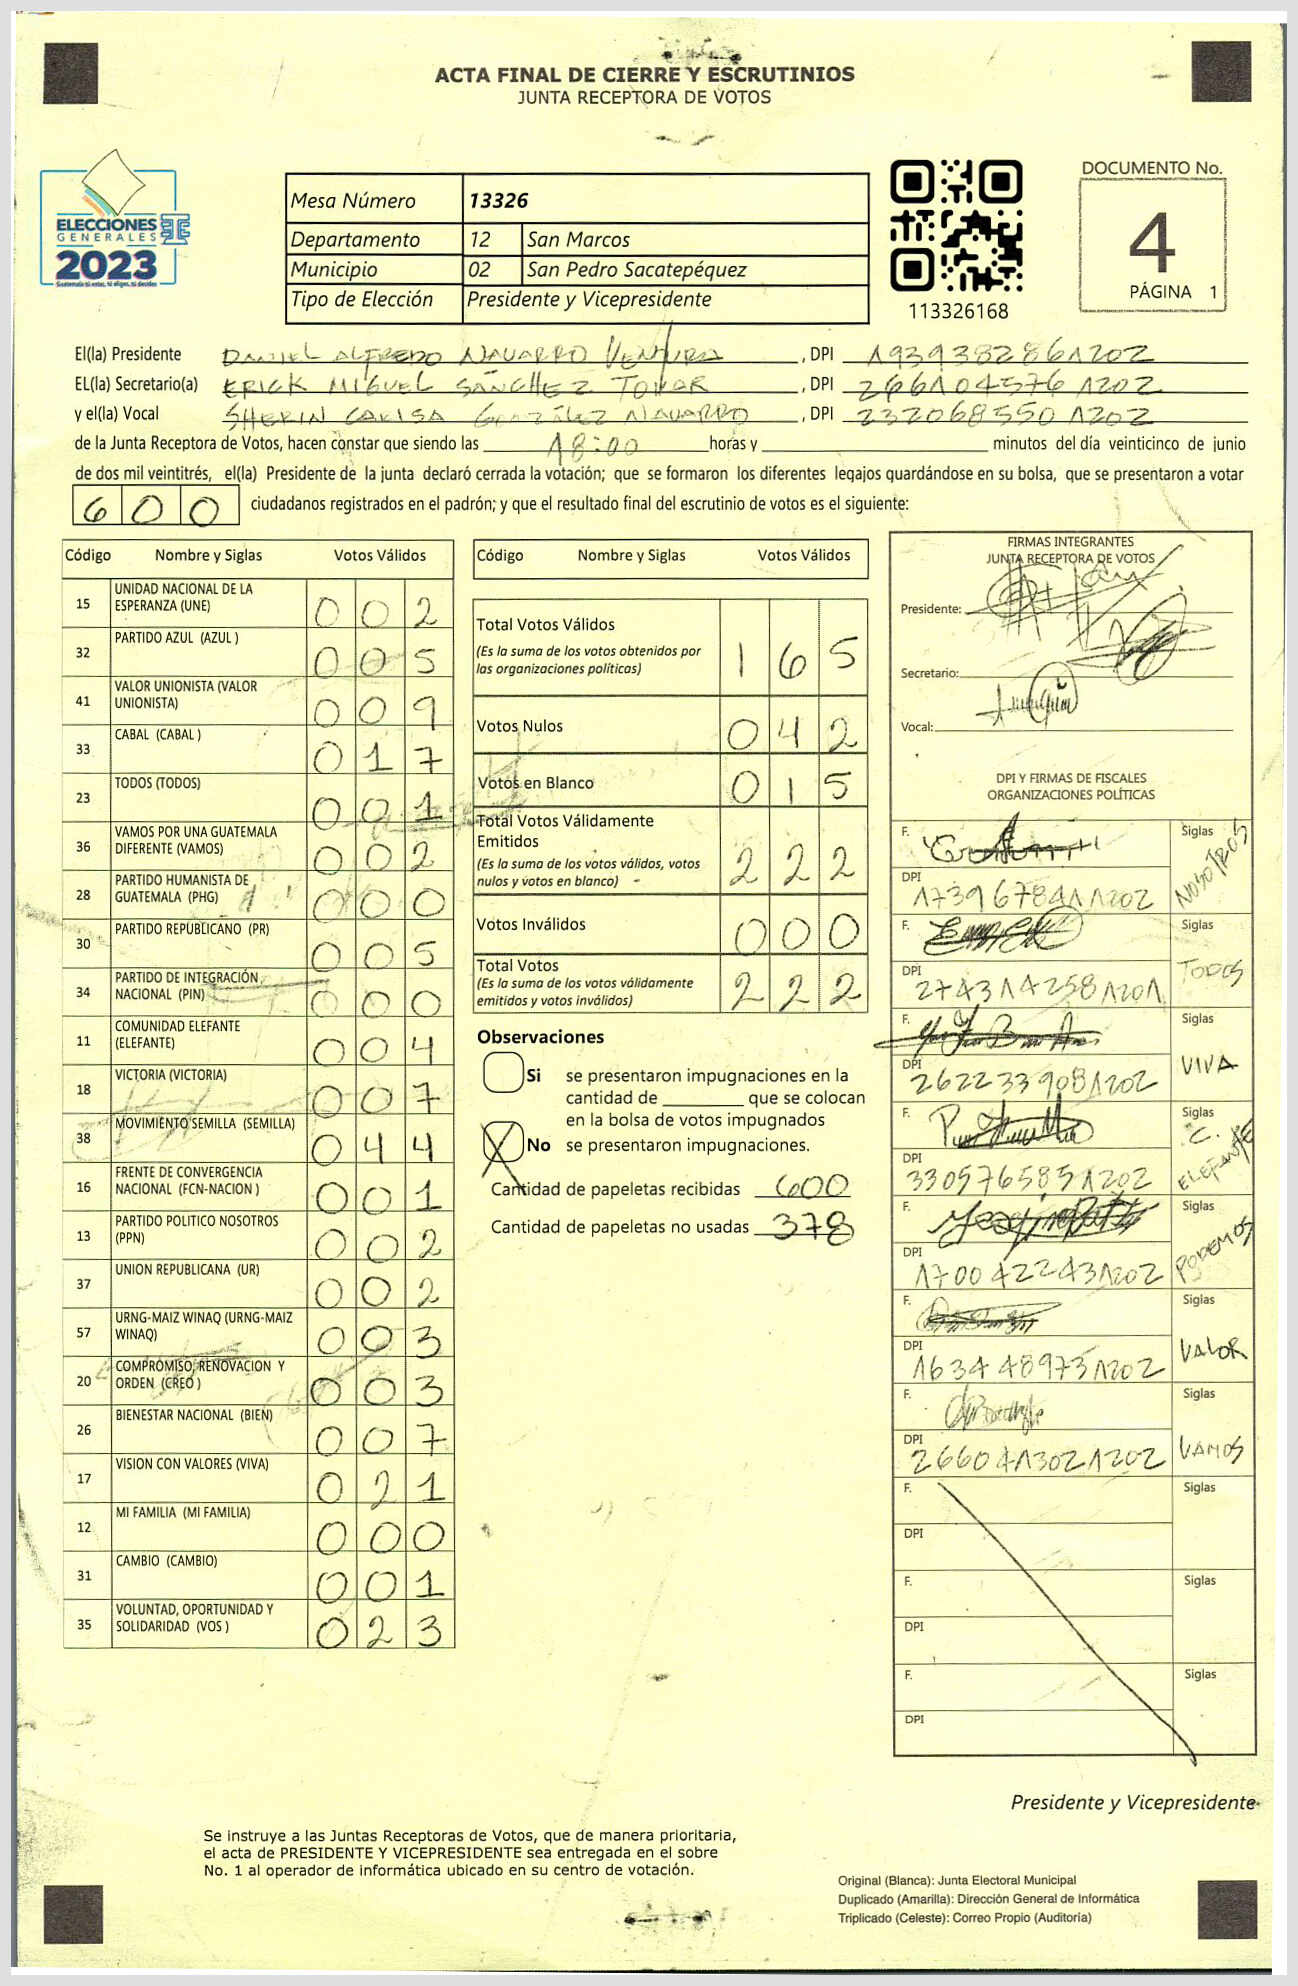 ACTA FINAL DE CIERRE Y ESCRUTINIOS
JUNTA RECEPTORA DE VOTOS
ELECCIONES
GENERALES
2023
Guatemala tú votas, tú eliges, tú decides
Mesa Número 13326
Departamento 12 San Marcos
Municipio 02 San Pedro Sacatepéquez
Tipo de Elección Presidente y Vicepresidente
113326168
DOCUMENTO No.
4
PÁGINA 1
El(la) Presidente DANIEL ALFREDO NAVARRO VENTURA, DPI 1939382861202
EL(la) Secretario(a) ERICK MIGUEL SÁNCHEZ TOVAR, DPI 2661045761202
y el(la) Vocal SHERIN CARISA GONZÁLEZ NAVARRO, DPI 2320685501202
de la Junta Receptora de Votos, hacen constar que siendo las 18:00 horas y minutos del día veinticinco de junio
de dos mil veintitrés, el(la) Presidente de la junta declaró cerrada la votación; que se formaron los diferentes legajos guardándose en su bolsa, que se presentaron a votar
600 ciudadanos registrados en el padrón; y que el resultado final del escrutinio de votos es el siguiente:
Código Nombre y Siglas Votos Válidos
15 UNIDAD NACIONAL DE LA ESPERANZA (UNE) 002
32 PARTIDO AZUL (AZUL ) 005
41 VALOR UNIONISTA (VALOR UNIONISTA) 009
33 CABAL (CABAL ) 017
23 TODOS (TODOS) 001
36 VAMOS POR UNA GUATEMALA DIFERENTE (VAMOS) 002
28 PARTIDO HUMANISTA DE GUATEMALA (PHG) 000
30 PARTIDO REPUBLICANO (PR) 005
34 PARTIDO DE INTEGRACIÓN NACIONAL (PIN) 000
11 COMUNIDAD ELEFANTE (ELEFANTE) 004
18 VICTORIA (VICTORIA) 007
38 MOVIMIENTO SEMILLA (SEMILLA) 044
16 FRENTE DE CONVERGENCIA NACIONAL (FCN-NACION ) 001
13 PARTIDO POLITICO NOSOTROS (PPN) 002
37 UNION REPUBLICANA (UR) 002
57 URNG-MAIZ WINAQ (URNG-MAIZ WINAQ) 003
20 COMPROMISO, RENOVACION Y ORDEN (CREO ) 003
26 BIENESTAR NACIONAL (BIEN) 007
17 VISION CON VALORES (VIVA) 021
12 MI FAMILIA (MI FAMILIA) 000
31 CAMBIO (CAMBIO) 001
35 VOLUNTAD, OPORTUNIDAD Y SOLIDARIDAD (VOS ) 023
Código Nombre y Siglas Votos Válidos
Total Votos Válidos 165
(Es la suma de los votos obtenidos por
las organizaciones políticas)
Votos Nulos 042
Votos en Blanco 015
Total Votos Válidamente
Emitidos 222
(Es la suma de los votos válidos, votos
nulos y votos en blanco)
Votos Inválidos 000
Total Votos 222
(Es la suma de los votos válidamente
emitidos y votos inválidos)
Observaciones
Si se presentaron impugnaciones en la
cantidad de que se colocan
en la bolsa de votos impugnados
X No se presentaron impugnaciones.
Cantidad de papeletas recibidas 600
Cantidad de papeletas no usadas 378
FIRMAS INTEGRANTES
JUNTA RECEPTORA DE VOTOS
Presidente:
Secretario:
Vocal:
DPI Y FIRMAS DE FISCALES
ORGANIZACIONES POLÍTICAS
F. Siglas NOSOTROS
DPI 1739678411202
F. Siglas TODOS
DPI 2743142581201
F. Siglas VIVA
DPI 2622339081202
F. Siglas C. ELEFANTE
DPI 3305765851202
F. Siglas PODEMOS
DPI 1700422431202
F. Siglas VALOR
DPI 1634489731202
F. Siglas VAMOS
DPI 2660413021202
F. Siglas
DPI
F. Siglas
DPI
F. Siglas
DPI
Presidente y Vicepresidente
Se instruye a las Juntas Receptoras de Votos, que de manera prioritaria,
el acta de PRESIDENTE Y VICEPRESIDENTE sea entregada en el sobre
No. 1 al operador de informática ubicado en su centro de votación.
Original (Blanca): Junta Electoral Municipal
Duplicado (Amarilla): Dirección General de Informática
Triplicado (Celeste): Correo Propio (Auditoría)